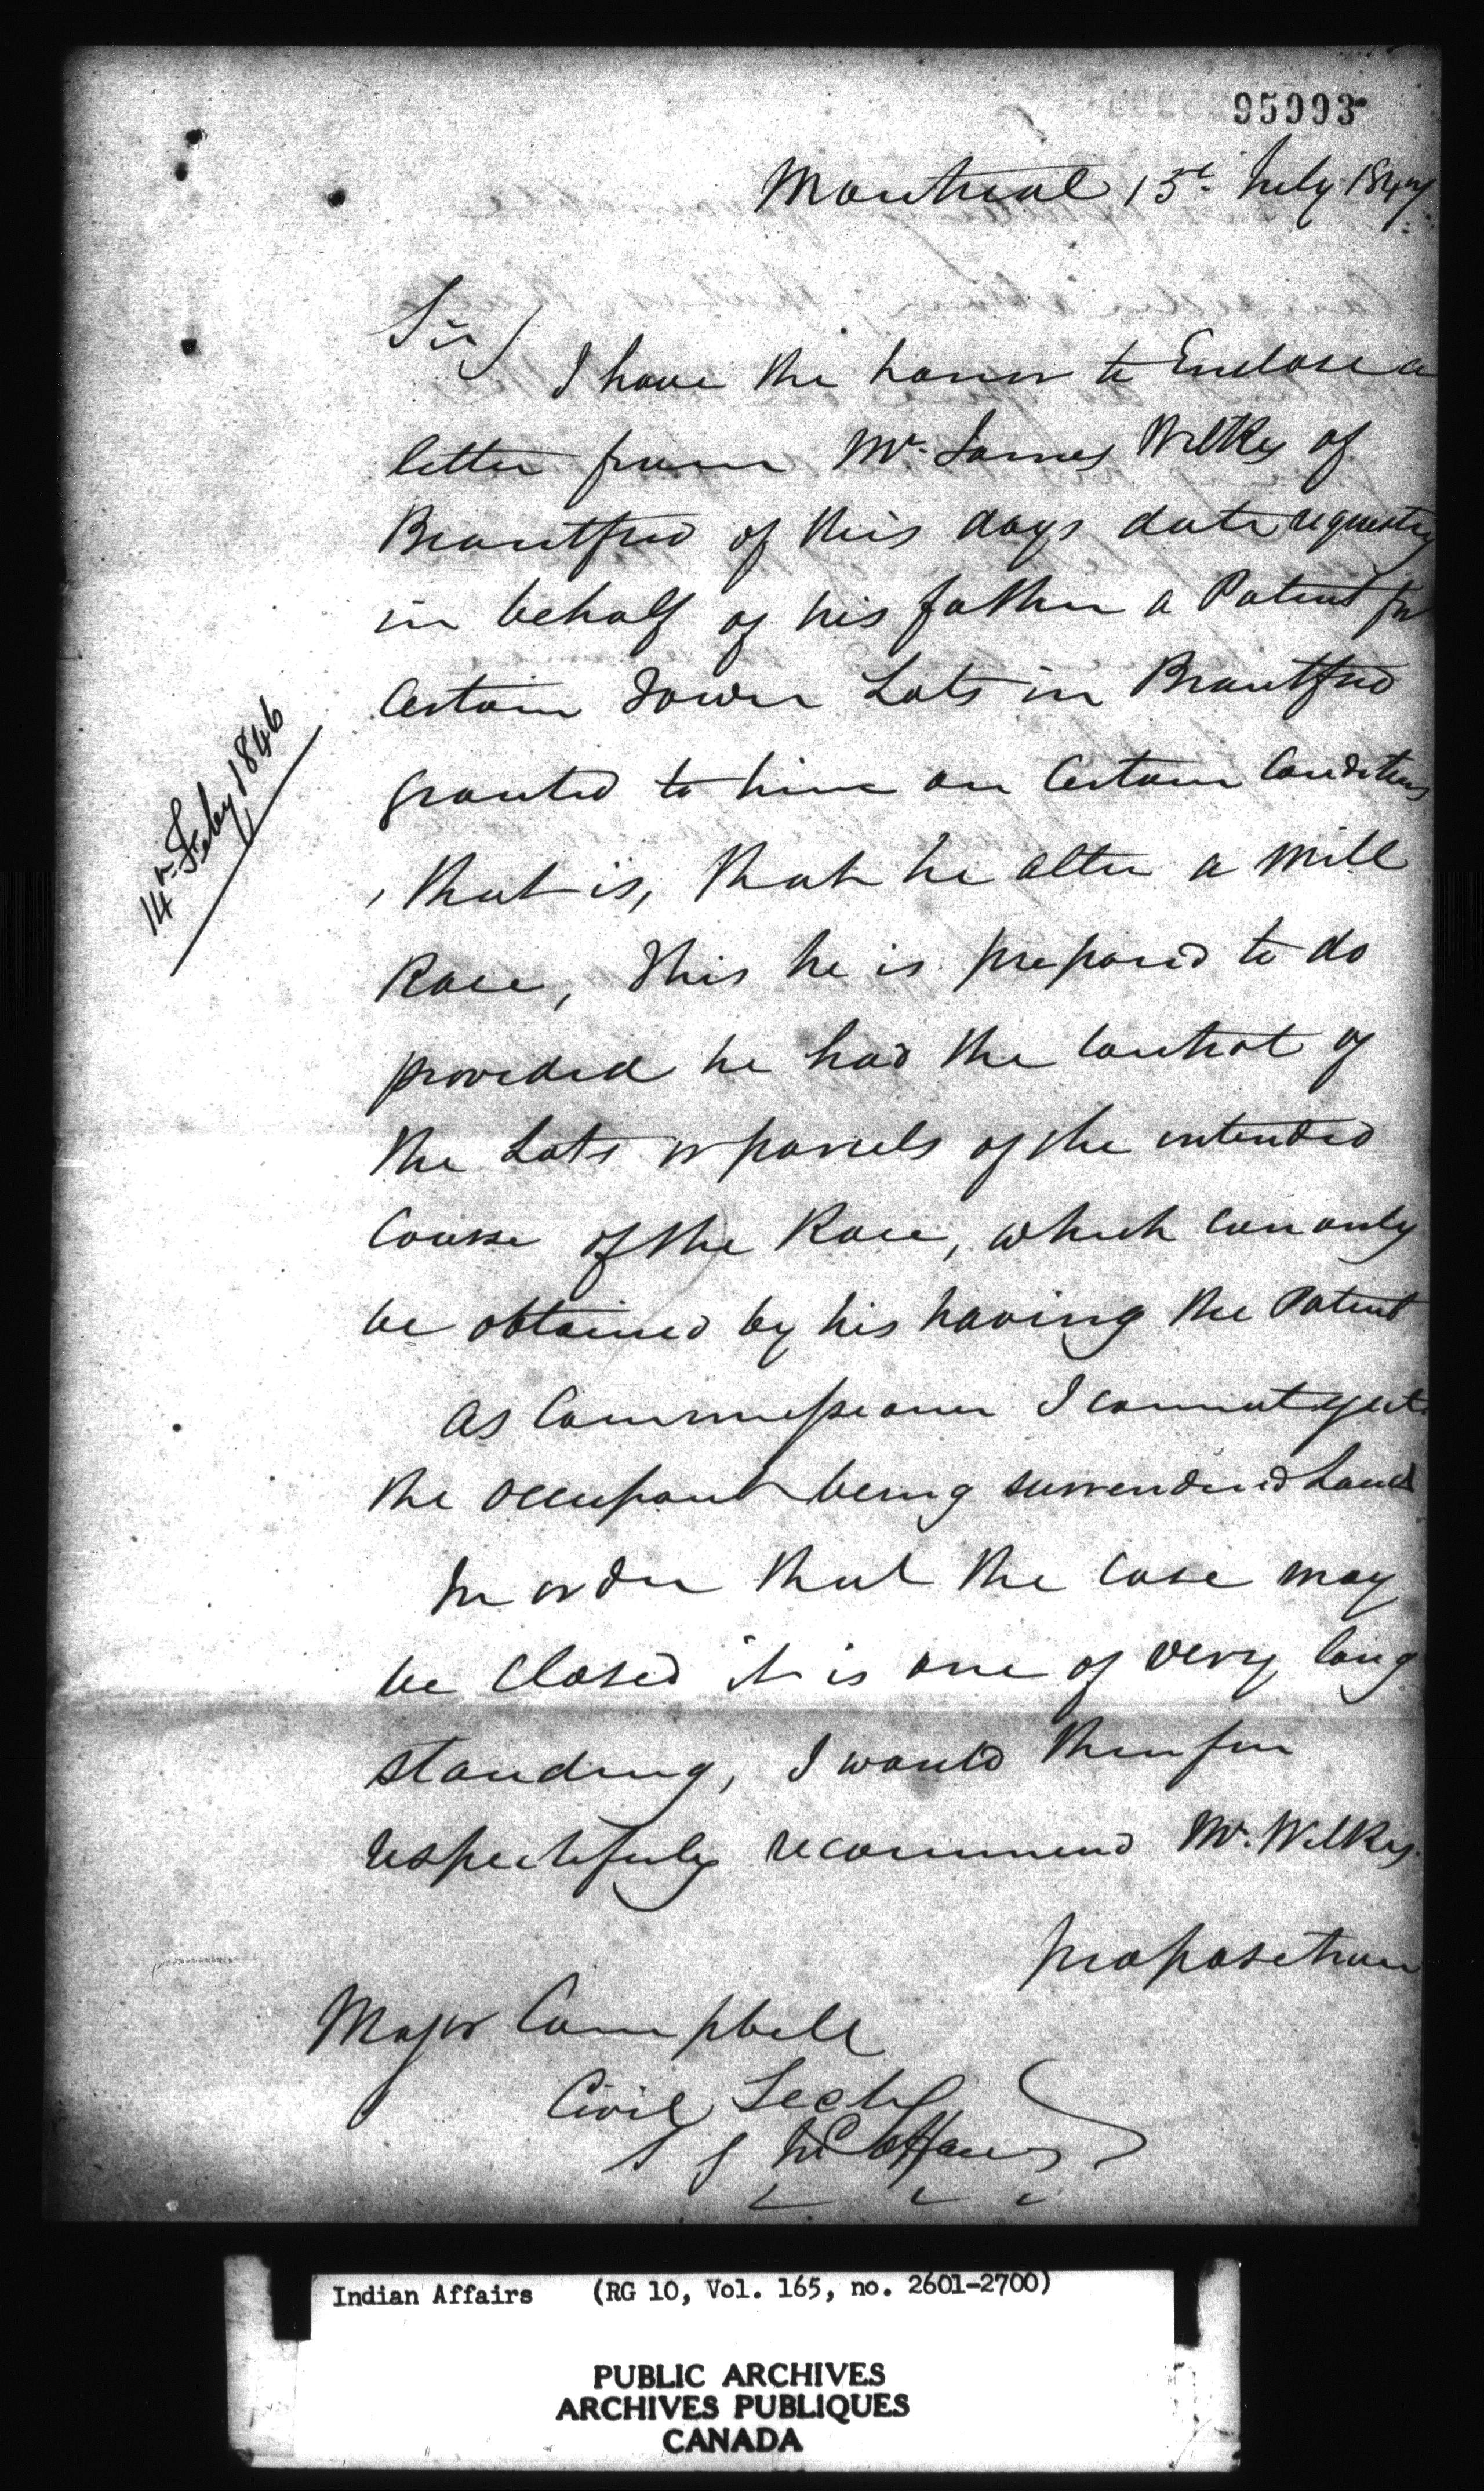 95993
Montreal 13th July 1847
Sir
I have the honor to Enclose a
letter from Mr. James Wilkes of
Brantford of this days date requesting
in behalf of his father a Patent for
Certain Town Lots in Brantford
granted to him on Certain Conditions
, that is, that he alter a Mill
Race, This he is prepared to do
provided he had the Control of
the Lots or parcels of the intended
Course of the Race, which can only
be obtained by his having the Patent
As Commissioner I cannot eject
the Occupant being surrendered Land
In order that the Case may
be Closed it is one of very long
standing, I would therefore
respectfully recommend Mr. Wilkes
proposition
Major Campbell
Civil Secty
14th Feby 1846
Indian Affairs (RG 10, Vol. 165, no. 2601-2700)
PUBLIC ARCHIVES
ARCHIVES PUBLIQUES
CANADA